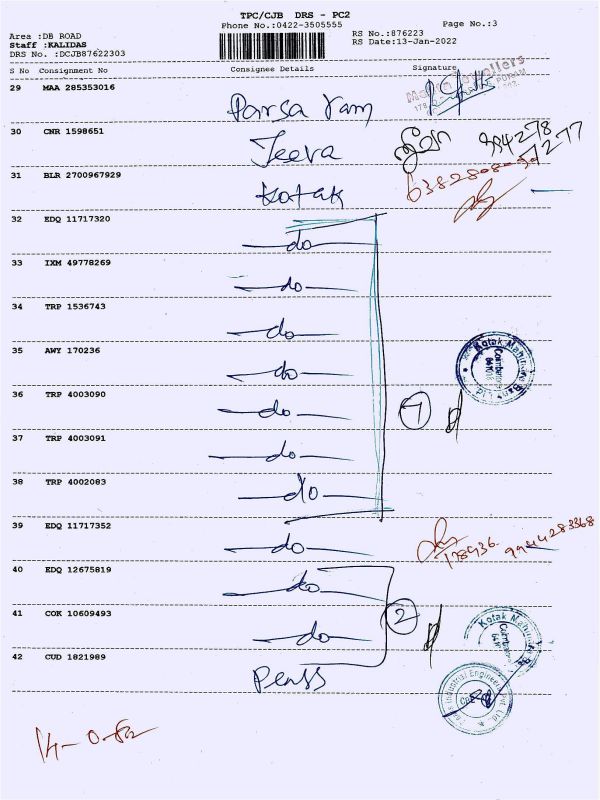 TPC/CJB DRS - PC2
Phone No.:0422-3505555
Page No.:3
Area :DB ROAD
Staff :KALIDAS
DRS No. :DCJB87622303
RS No.:876223
RS Date:13-Jan-2022
S No Consignment No Consignee Details Signature
29 MAA 285353016 Parsa ram
30 CNR 1598651 Jeeva
31 BLR 2700967929 Kotak
32 EDQ 11717320 do
33 IXM 49778269 do
34 TRP 1536743 do
35 AWY 170236 do
36 TRP 4003090 do
37 TRP 4003091 do
38 TRP 4002083 do
7
Kotak Mahindra
Coimbatore
39 EDQ 11717352 do
178436 9944283368
40 EDQ 12675819 do
41 COK 10609493 do
2
Kotak Mahindra
Coimbatore
42 CUD 1821989
Industrial Engineers Pvt. Ltd.